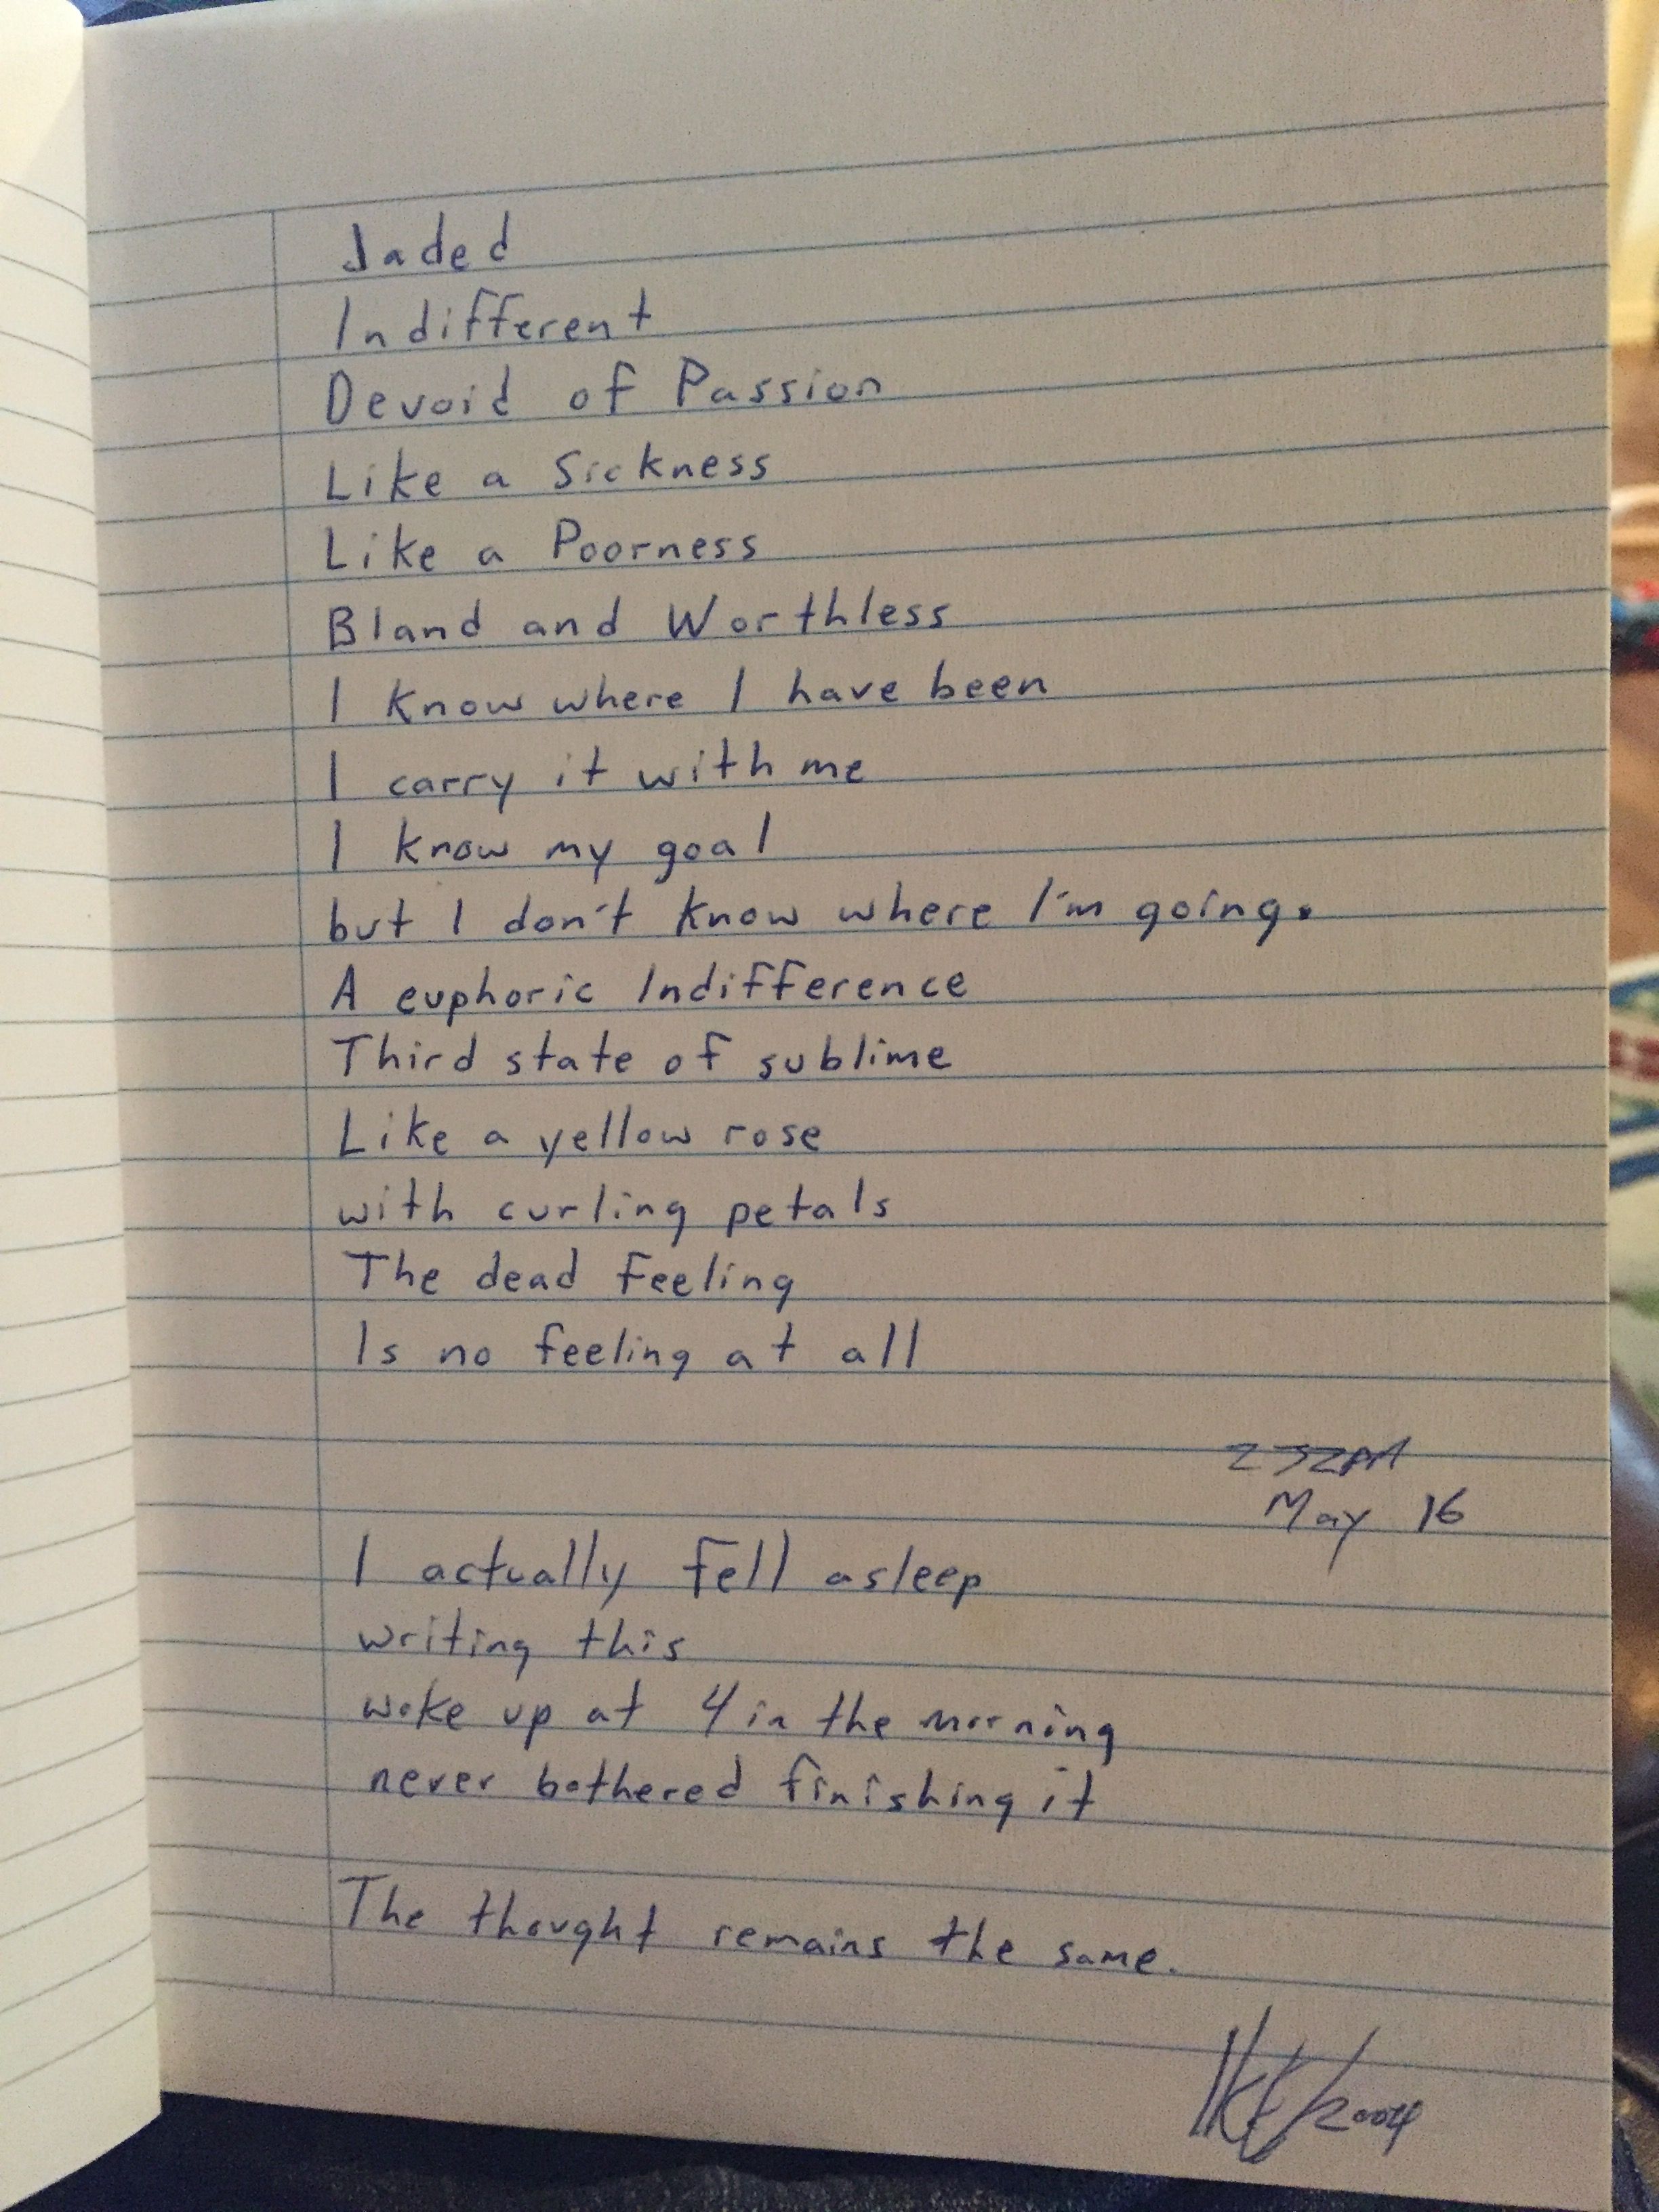 Jaded
Indifferent
Devoid of Passion
Like a Sickness
Like a Poorness
Bland and Worthless
I know where I have been
I carry it with me
I know my goal
but I don't know where I'm going.
A euphoric Indifference
Third state of sublime
Like a yellow rose
with curling petals
The dead feeling
Is no feeling at all
May 16
I actually fell asleep
writing this
woke up at 4 in the morning
never bothered finishing it
The thought remains the same.
2004